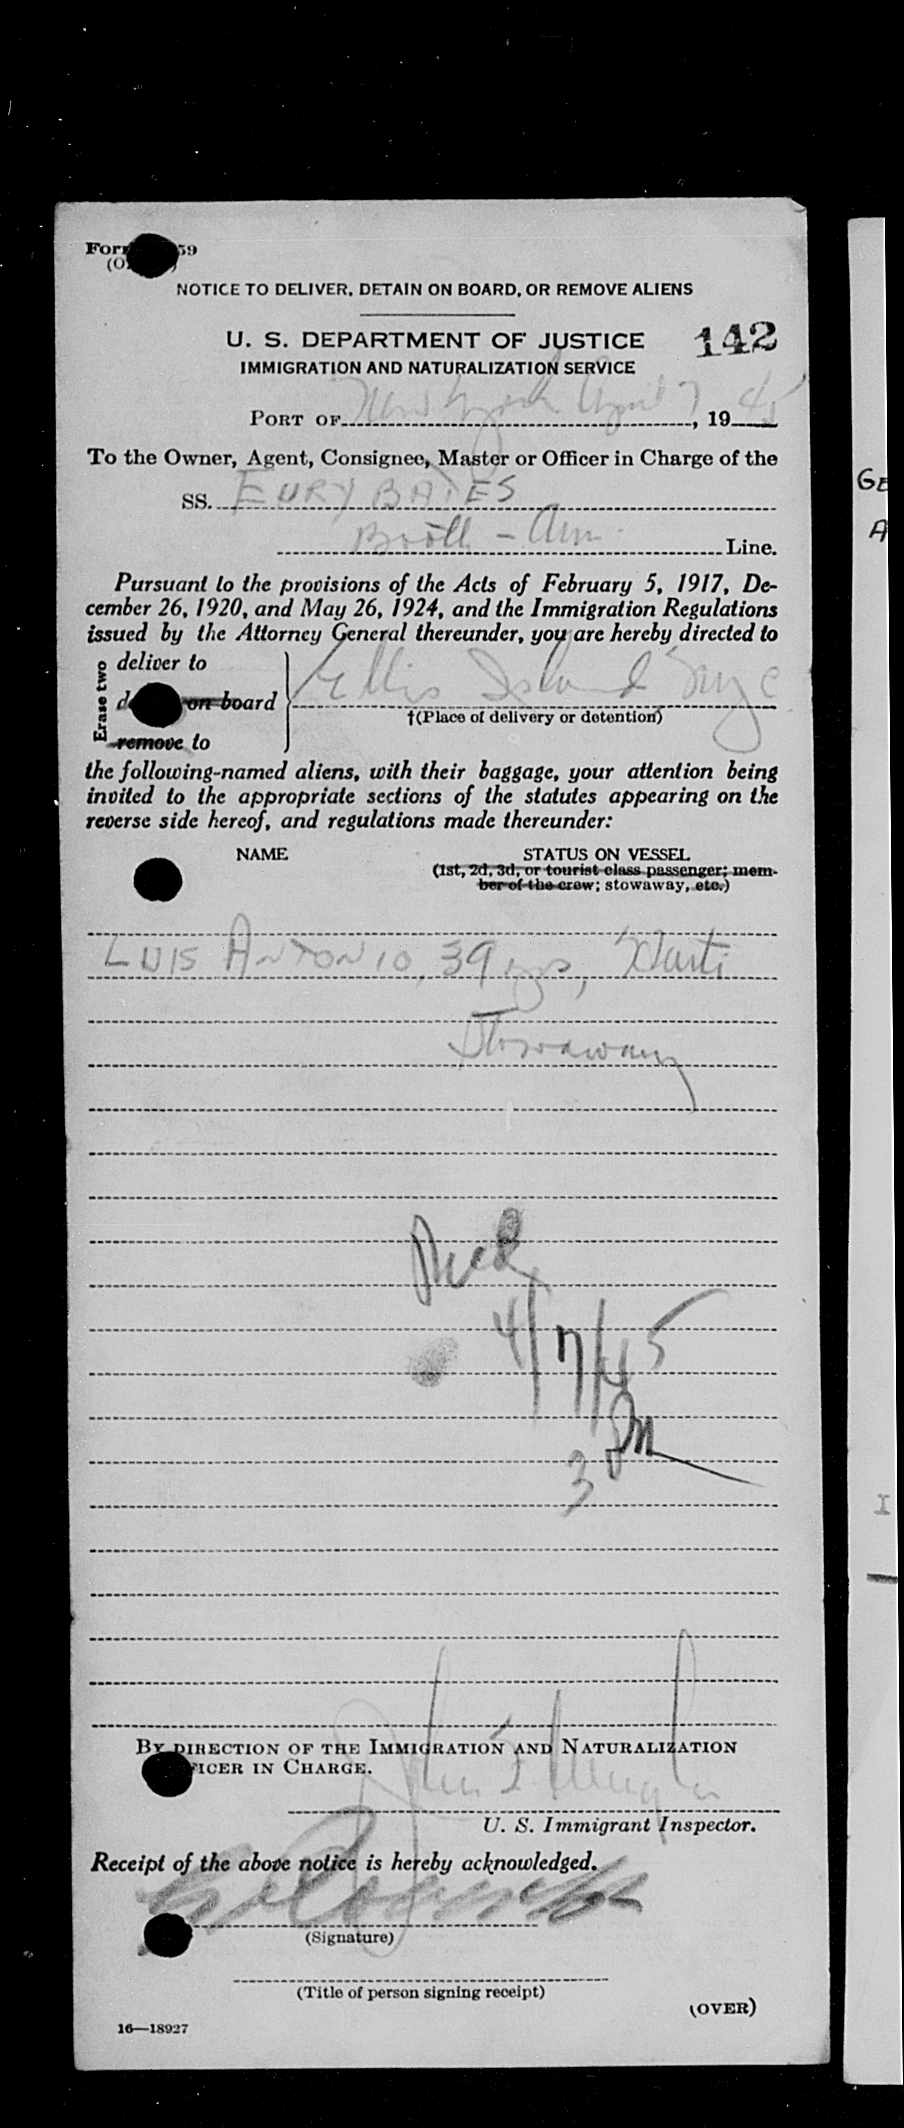 NOTICE TO DELIVER, DETAIN ON BOARD, OR REMOVE ALIENS
U. S. DEPARTMENT OF JUSTICE 142
IMMIGRATION AND NATURALIZATION SERVICE
PORT OF New York April 7, 1945
To the Owner, Agent, Consignee, Master or Officer in Charge of the
SS. EURYBATES
Booth - Am. Line.
Pursuant to the provisions of the Acts of February 5, 1917, De-
cember 26, 1920, and May 26, 1924, and the Immigration Regulations
issued by the Attorney General thereunder, you are hereby directed to
Erase two
deliver to
on board
remove to
Ellis Island NYC
†(Place of delivery or detention)
the following-named aliens, with their baggage, your attention being
invited to the appropriate sections of the statutes appearing on the
reverse side hereof, and regulations made thereunder:
NAME STATUS ON VESSEL
(1st, 2d, 3d, or tourist class passenger; mem-
ber of the crew; stowaway, etc.)
LUIS ANTONIO, 39 yrs,
Stowaway
Recd
4/7/45
3 PM
BY DIRECTION OF THE IMMIGRATION AND NATURALIZATION
OFFICER IN CHARGE.
U. S. Immigrant Inspector.
Receipt of the above notice is hereby acknowledged.
(Signature)
(Title of person signing receipt)
(OVER)
16—18927
GE
A
I